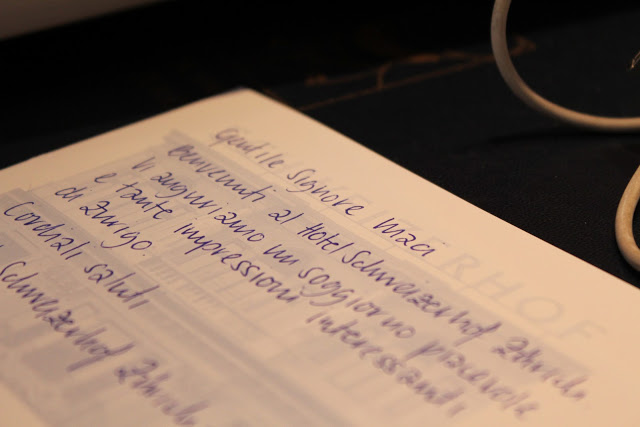 Gentile Signore Maci
Benvenuti al Hotel Schweizerhof Zürich.
Vi auguriamo un soggiorno piacevole
e tante impressioni interessanti
di Zurigo.
Cordiali saluti
Schweizerhof Zürich
RHOF